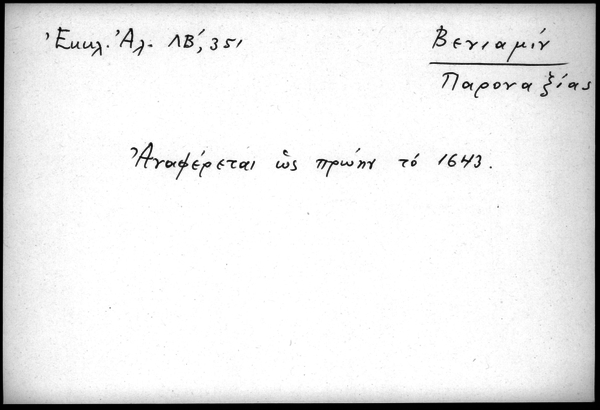 Ἐκκλ. Ἀλ. ΛΒ΄, 351
Βενιαμίν
Παροναξίας
Ἀναφέρεται ὡς πρώην τό 1643.